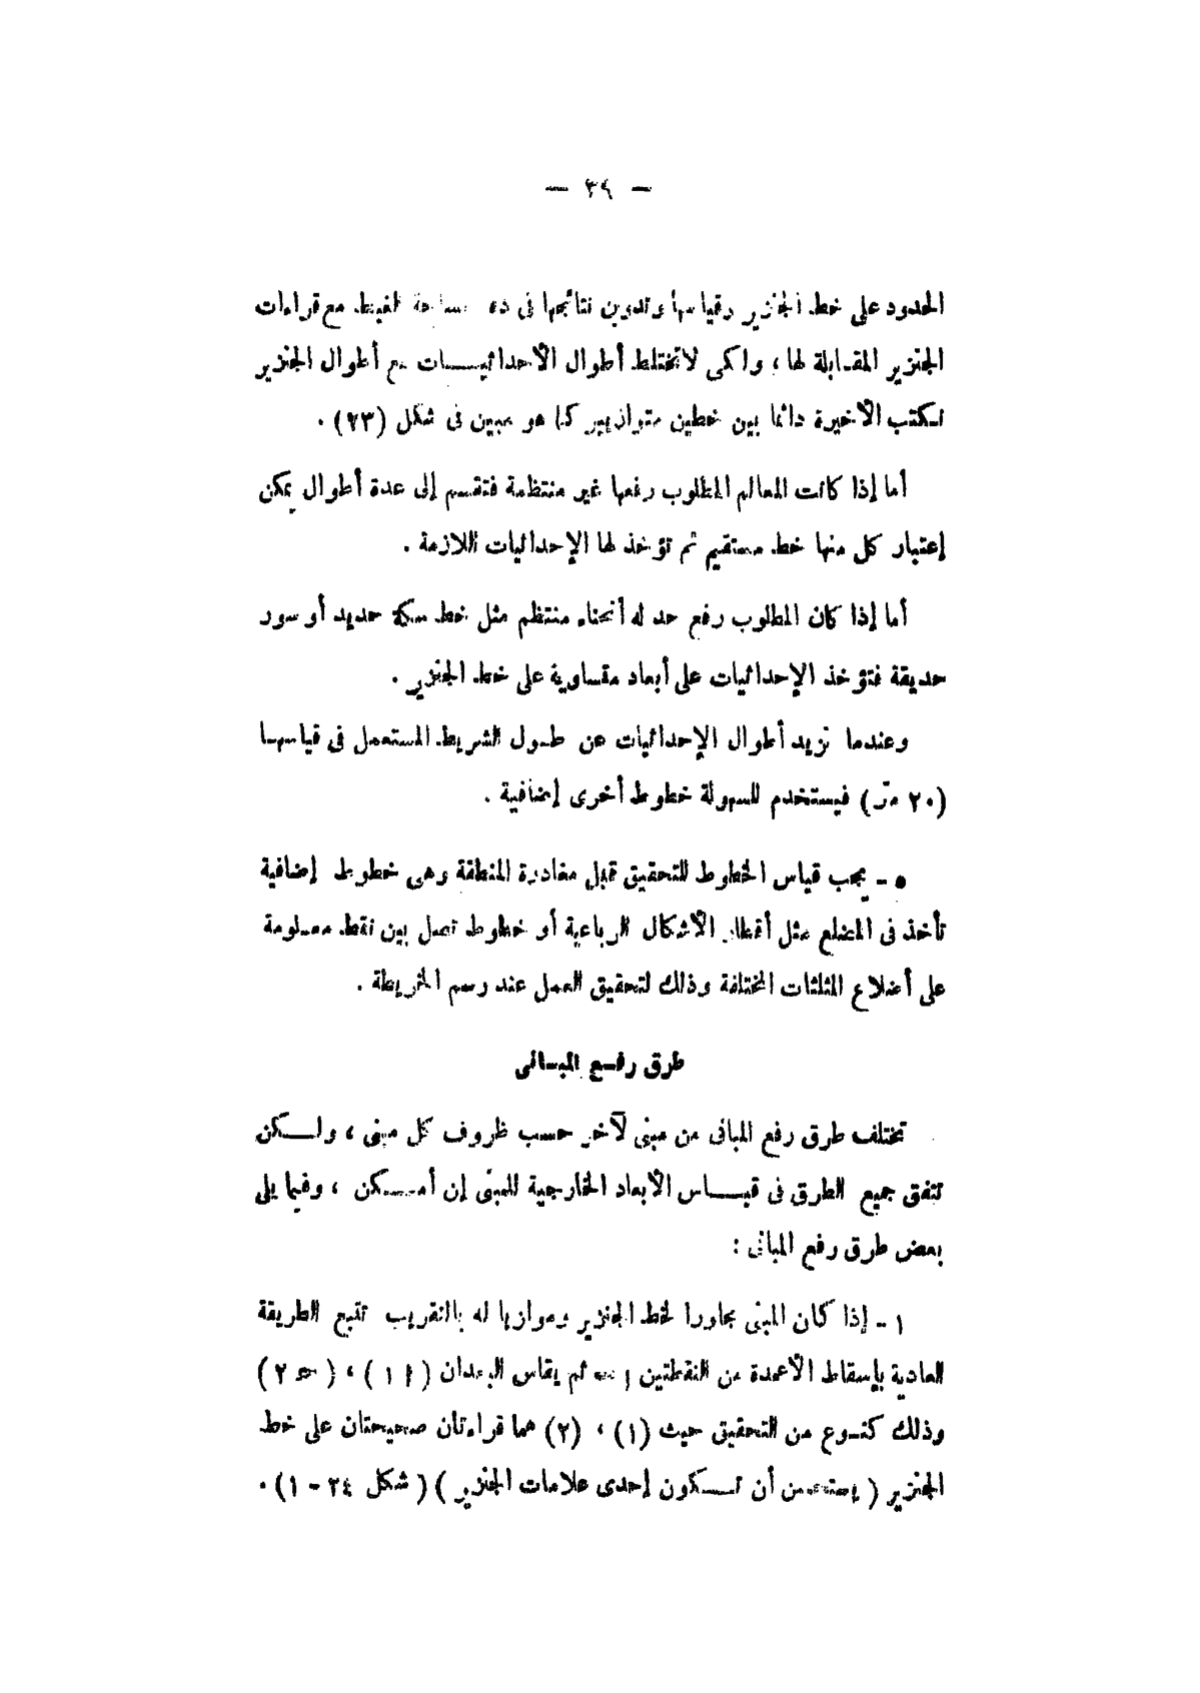 — ٣٩ —
الحدود على خط الجنزير وقياسها وتدوين نتائجها فى مع قراءات
الجنزير المقابلة لها ، ولكى لاتختلط أطوال الأحداثيات مع أطوال الجنزير
تكتب الأخيرة دائما بين خطين متوازيين كما هو مبين فى شكل (٢٣) .
أما إذا كانت المعالم المطلوب رفعها غير منتظمة فتقسم إلى عدة أطوال يمكن
إعتبار كل منها خط مستقيم ثم تؤخذ لها الإحداثيات اللازمة .
أما إذا كان المطلوب رفع حد له أنحناء منتظم مثل خط سكة حديد أو سور
حديقة فتؤخذ الإحداثيات على أبعاد متساوية على خط الجنزير .
وعندما تزيد أطوال الإحداثيات عن طول الشريط المستعمل فى قياسها
(٢٠ متر) فيستخدم للسهولة خطوط أخرى إضافية .
٥ - يجب قياس الخطوط للتحقيق قبل مغادرة المنطقة وهى خطوط إضافية
تأخذ فى المضلع مثل أقطار الأشكال الرباعية أو خطوط تصل بين نقط معلومة
على أضلاع المثلثات المختلفة وذلك لتحقيق العمل عند رسم الخريطة .
طرق رفع المبانى
تختلف طرق رفع المبانى من مبنى لآخر حسب ظروف كل مبنى ، ولكن
تتفق جميع الطرق فى قياس الأبعاد الخارجية للمبنى إن أمكن ، وفيما يلى
بعض طرق رفع المبانى :
١ - إذا كان المبنى مجاورا لخط الجنزير وموازيا له بالتقريب تتبع الطريقة
العادية بإسقاط الأعمدة من النقطتين ثم يقاس البعدان ( ا ١ ) ، ( حـ ٢ )
وذلك كنوع من التحقيق حيث (١) ، (٢) هما قراءتان صحيحتان على خط
الجنزير ( يستحسن أن تكون إحدى علامات الجنزير ) ( شكل ٢٤ - ١ ) .